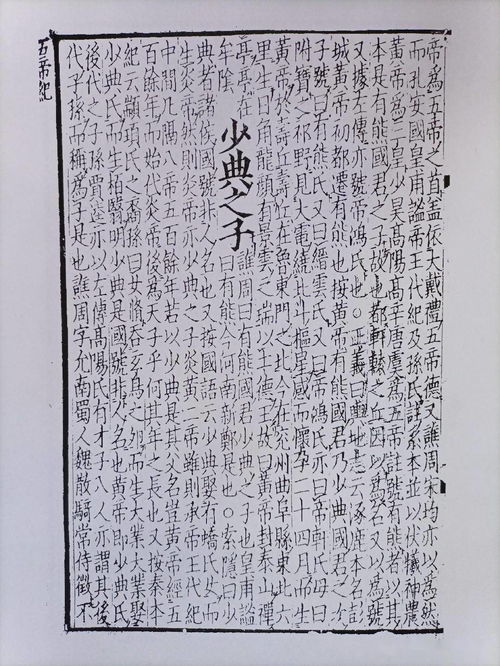 帝爲五帝之首蓋依大戴禮五帝德又譙周宋均亦以爲然
而孔安國皇甫謐帝王代紀及孫氏註系本並以伏犧神農
黃帝爲三皇少昊高陽高辛唐虞爲五帝註號有熊者以其
本是有熊國君之子故也都軒轅之丘因以爲名又以爲號
又據左傳亦號帝鴻氏也○正義曰輿地志云涿鹿本名彭
城黃帝初都遷有熊也按黃帝有熊國君乃少典國君之次
子號曰有熊氏又曰縉雲氏又曰帝鴻氏亦曰帝軒氏母曰
附寶之祁野見大電繞北斗樞星感而懷孕二十四月而生
黃帝於壽丘壽丘在魯東門之北今在兖州曲阜縣東北六
里生日角龍顏有景雲之瑞以土德王故曰黃帝封泰山禪
亭亭在
牟陰
少典之子
譙周曰有熊國君少典之子也皇甫謐
曰有熊今河南新鄭是也○索隱曰少
典者諸侯國號非人名也又按國語云少典娶有蟜氏女而
生炎帝然則炎帝亦少典之子炎黃二帝雖則承帝王代紀
中間凡隔八帝五百餘年若以少典是其父名豈黃帝經五
百餘年而始代炎帝後爲天子乎何其年之長也又按秦本
紀云顓頊氏之裔孫曰女脩吞玄鳥之卵而生大業大業娶
少典氏而生柏翳明少典是國號非人名也黃帝即少典氏
後代之子孫賈逵亦以左傳高陽氏有才子八人亦謂其後
代子孫而稱爲子是也譙周字允南蜀人魏散騎常侍徵不
五帝紀